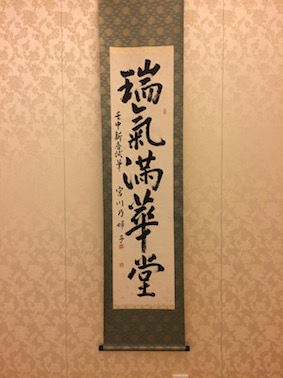 瑞氣滿華堂
壬申新春試筆 宮川乃